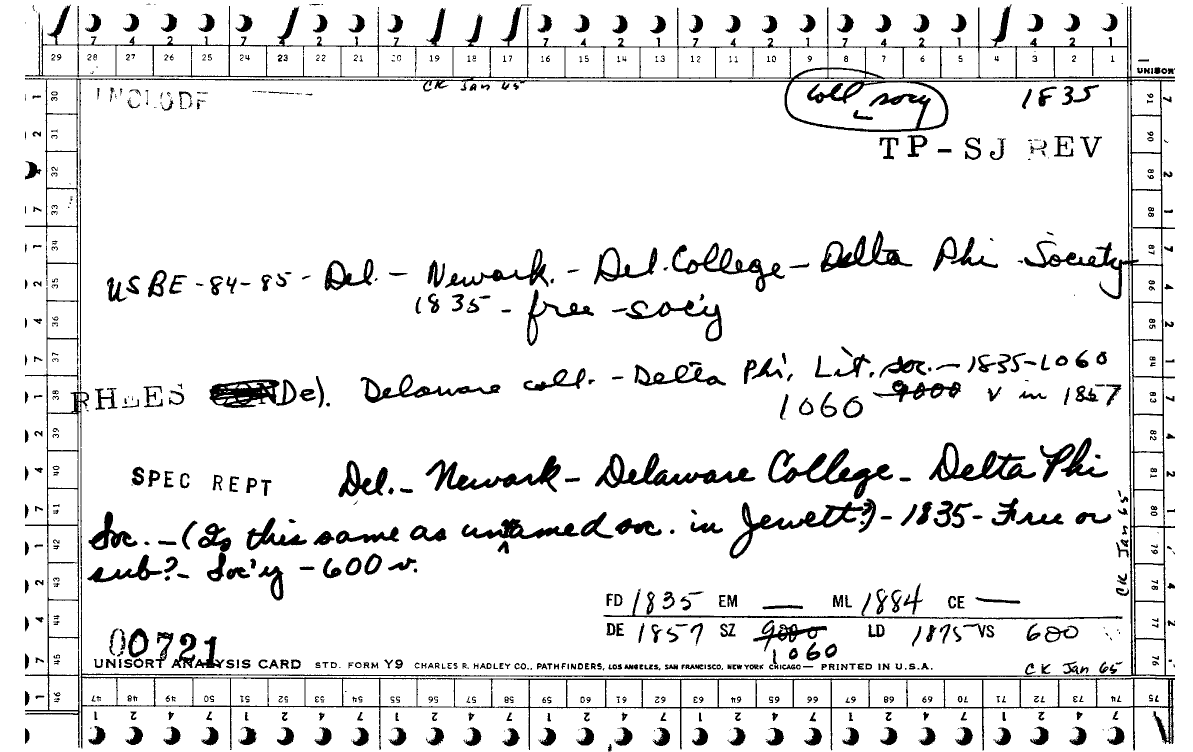 7 4 2 1 7 4 2 1 7 4 2 1 7 4 2 1 7 4 2 1 7 4 2 1 7 4 2 1
29 28 27 26 25 24 23 22 21 20 19 18 17 16 15 14 13 12 11 10 9 8 7 6 5 4 3 2 1
UNISORT
INCLUDE CK Jan 65 Coll socy 1835
TP-SJ REV
USBE-84-85-Del.-Newark.-Del.College-Delta Phi Society
1835-free-soc'y
RHEES Del. Delaware coll.-Delta Phi, Lit. soc.-1835-1060
1060 9000 v in 1857
SPEC REPT Del.-Newark-Delaware College-Delta Phi
Soc.-(Is this same as unnamed soc. in Jewett?)-1835-Free or
sub?-Soc'y-600 v.
CK Jan 65
FD 1835 EM — ML 1884 CE —
DE 1857 SZ 9000 LD 1875 VS 600
1060
00721
UNISORT ANALYSIS CARD STD. FORM Y9 CHARLES R. HADLEY CO., PATHFINDERS, LOS ANGELES, SAN FRANCISCO, NEW YORK CHICAGO — PRINTED IN U.S.A.
CK Jan 65
30 31 32 33 34 35 36 37 38 39 40 41 42 43 44 45 46
91 90 89 88 87 86 85 84 83 82 81 80 79 78 77 76 75
47 48 49 50 51 52 53 54 55 56 57 58 59 60 61 62 63 64 65 66 67 68 69 70 71 72 73 74